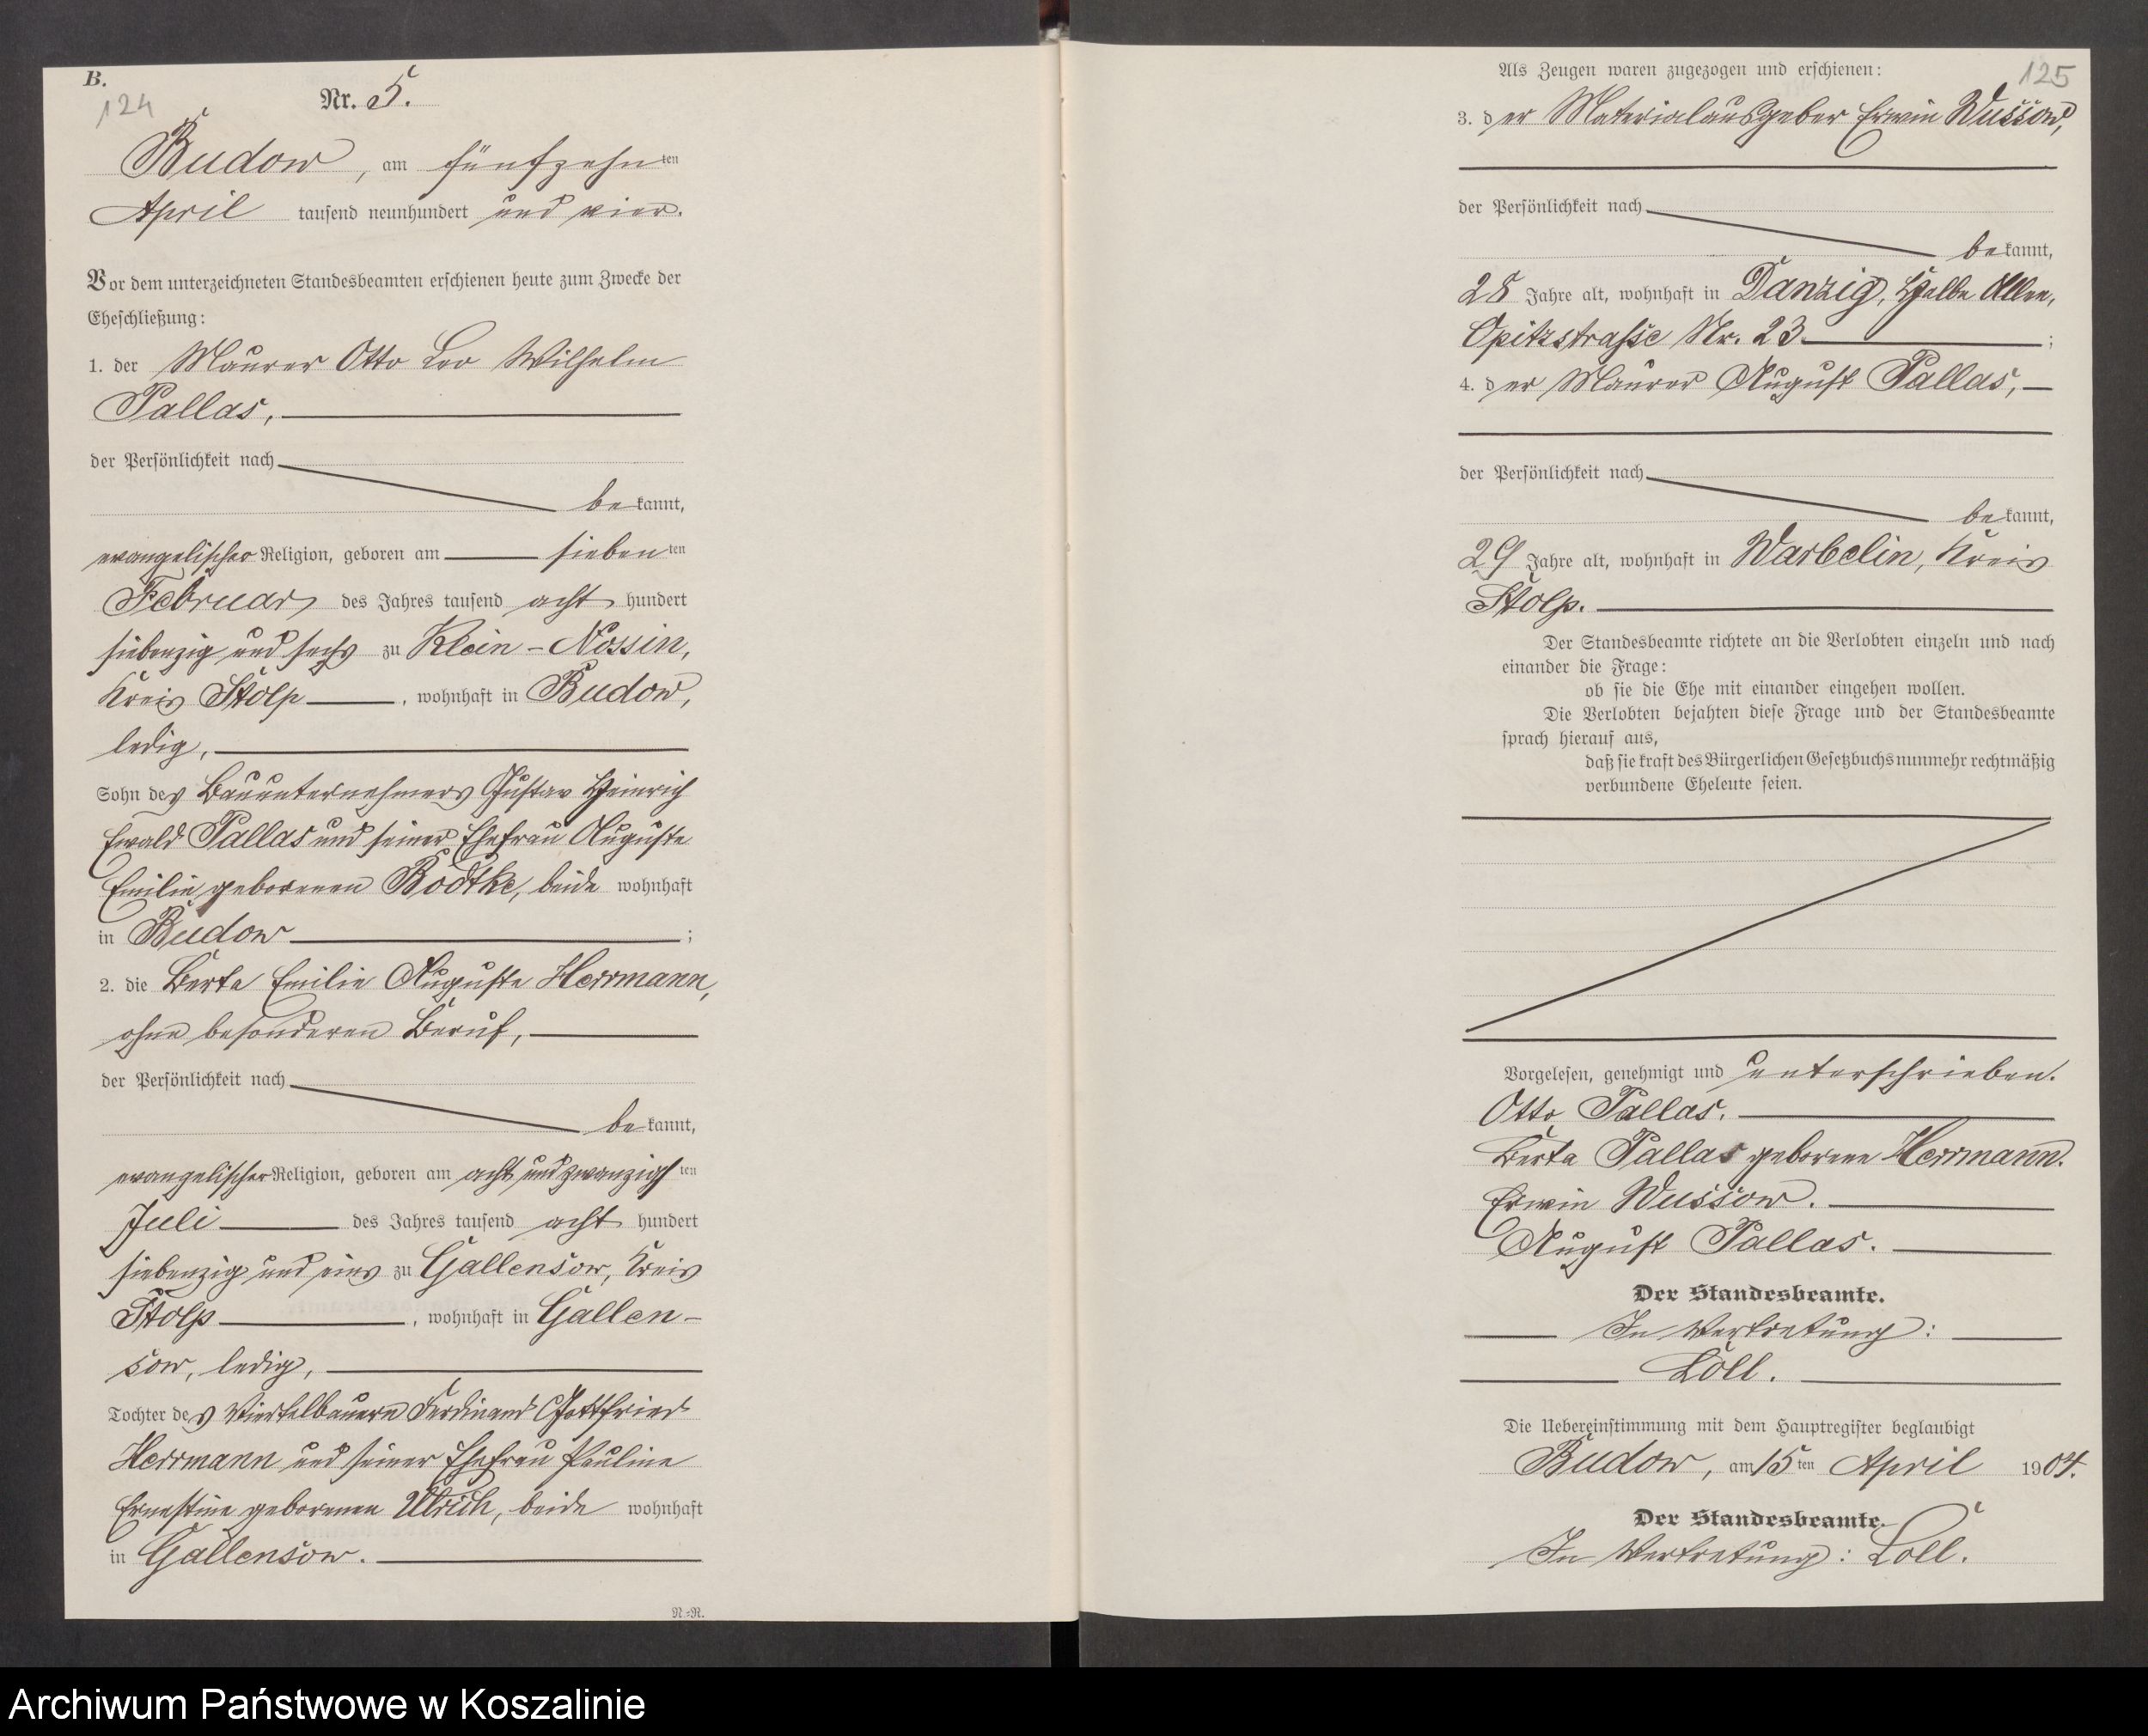 B.
124
Nr. 5.
Budow, am fünfzehnten
April tausend neunhundert und vier.
Vor dem unterzeichneten Standesbeamten erschienen heute zum Zwecke der
Eheschließung:
1. der Maurer Otto Leo Wilhelm
Pallas,
der Persönlichkeit nach
bekannt,
evangelischer Religion, geboren am siebenten
Februar des Jahres tausend acht hundert
siebenzig und sechs zu Klein-Nossin,
Kreis Stolp, wohnhaft in Budow,
ledig,
Sohn des Bauunternehmers Gustav Heinrich
Ewald Pallas und seiner Ehefrau Auguste
Emilie geborenen Bodtke, beide wohnhaft
in Budow;
2. die Berta Emilie Auguste Herrmann,
ohne besonderen Beruf,
der Persönlichkeit nach
bekannt,
evangelischer Religion, geboren am acht und zwanzigsten
Juli des Jahres tausend acht hundert
siebenzig und eins zu Gallensow, Kreis
Stolp, wohnhaft in Gallen-
sow, ledig,
Tochter des Viertelbauern Ferdinand Gottfried
Herrmann und seiner Ehefrau Pauline
Ernestine geborenen Ulrich, beide wohnhaft
in Gallensow.
N=R.
125
Als Zeugen waren zugezogen und erschienen:
3. der Materialausgeber Erwin Wussow,
der Persönlichkeit nach
bekannt,
28 Jahre alt, wohnhaft in Danzig, Halbe Allee,
Opitzstrasse Nr. 23;
4. der Maurer August Pallas,
der Persönlichkeit nach
bekannt,
29 Jahre alt, wohnhaft in Warbelin, Kreis
Stolp.
Der Standesbeamte richtete an die Verlobten einzeln und nach
einander die Frage:
ob sie die Ehe mit einander eingehen wollen.
Die Verlobten bejahten diese Frage und der Standesbeamte
sprach hierauf aus,
daß sie kraft des Bürgerlichen Gesetzbuchs nunmehr rechtmäßig
verbundene Eheleute seien.
Vorgelesen, genehmigt und unterschrieben.
Otto Pallas.
Berta Pallas geborene Herrmann.
Erwin Wussow.
August Pallas.
Der Standesbeamte.
In Vertretung:
Loll.
Die Uebereinstimmung mit dem Hauptregister beglaubigt
Budow, am 15ten April 1904.
Der Standesbeamte.
In Vertretung: Loll.
Archiwum Państwowe w Koszalinie